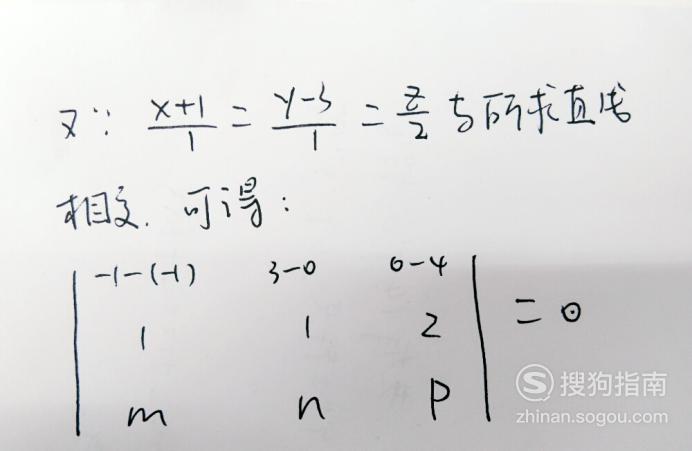 又∵ x+1/1 = y-3/1 = z/2 与所求直线
相交. 可得:
| -1-(-1) 3-0 0-4 |
| 1 1 2 | = 0
| m n p |
搜狗指南
zhinan.sogou.com